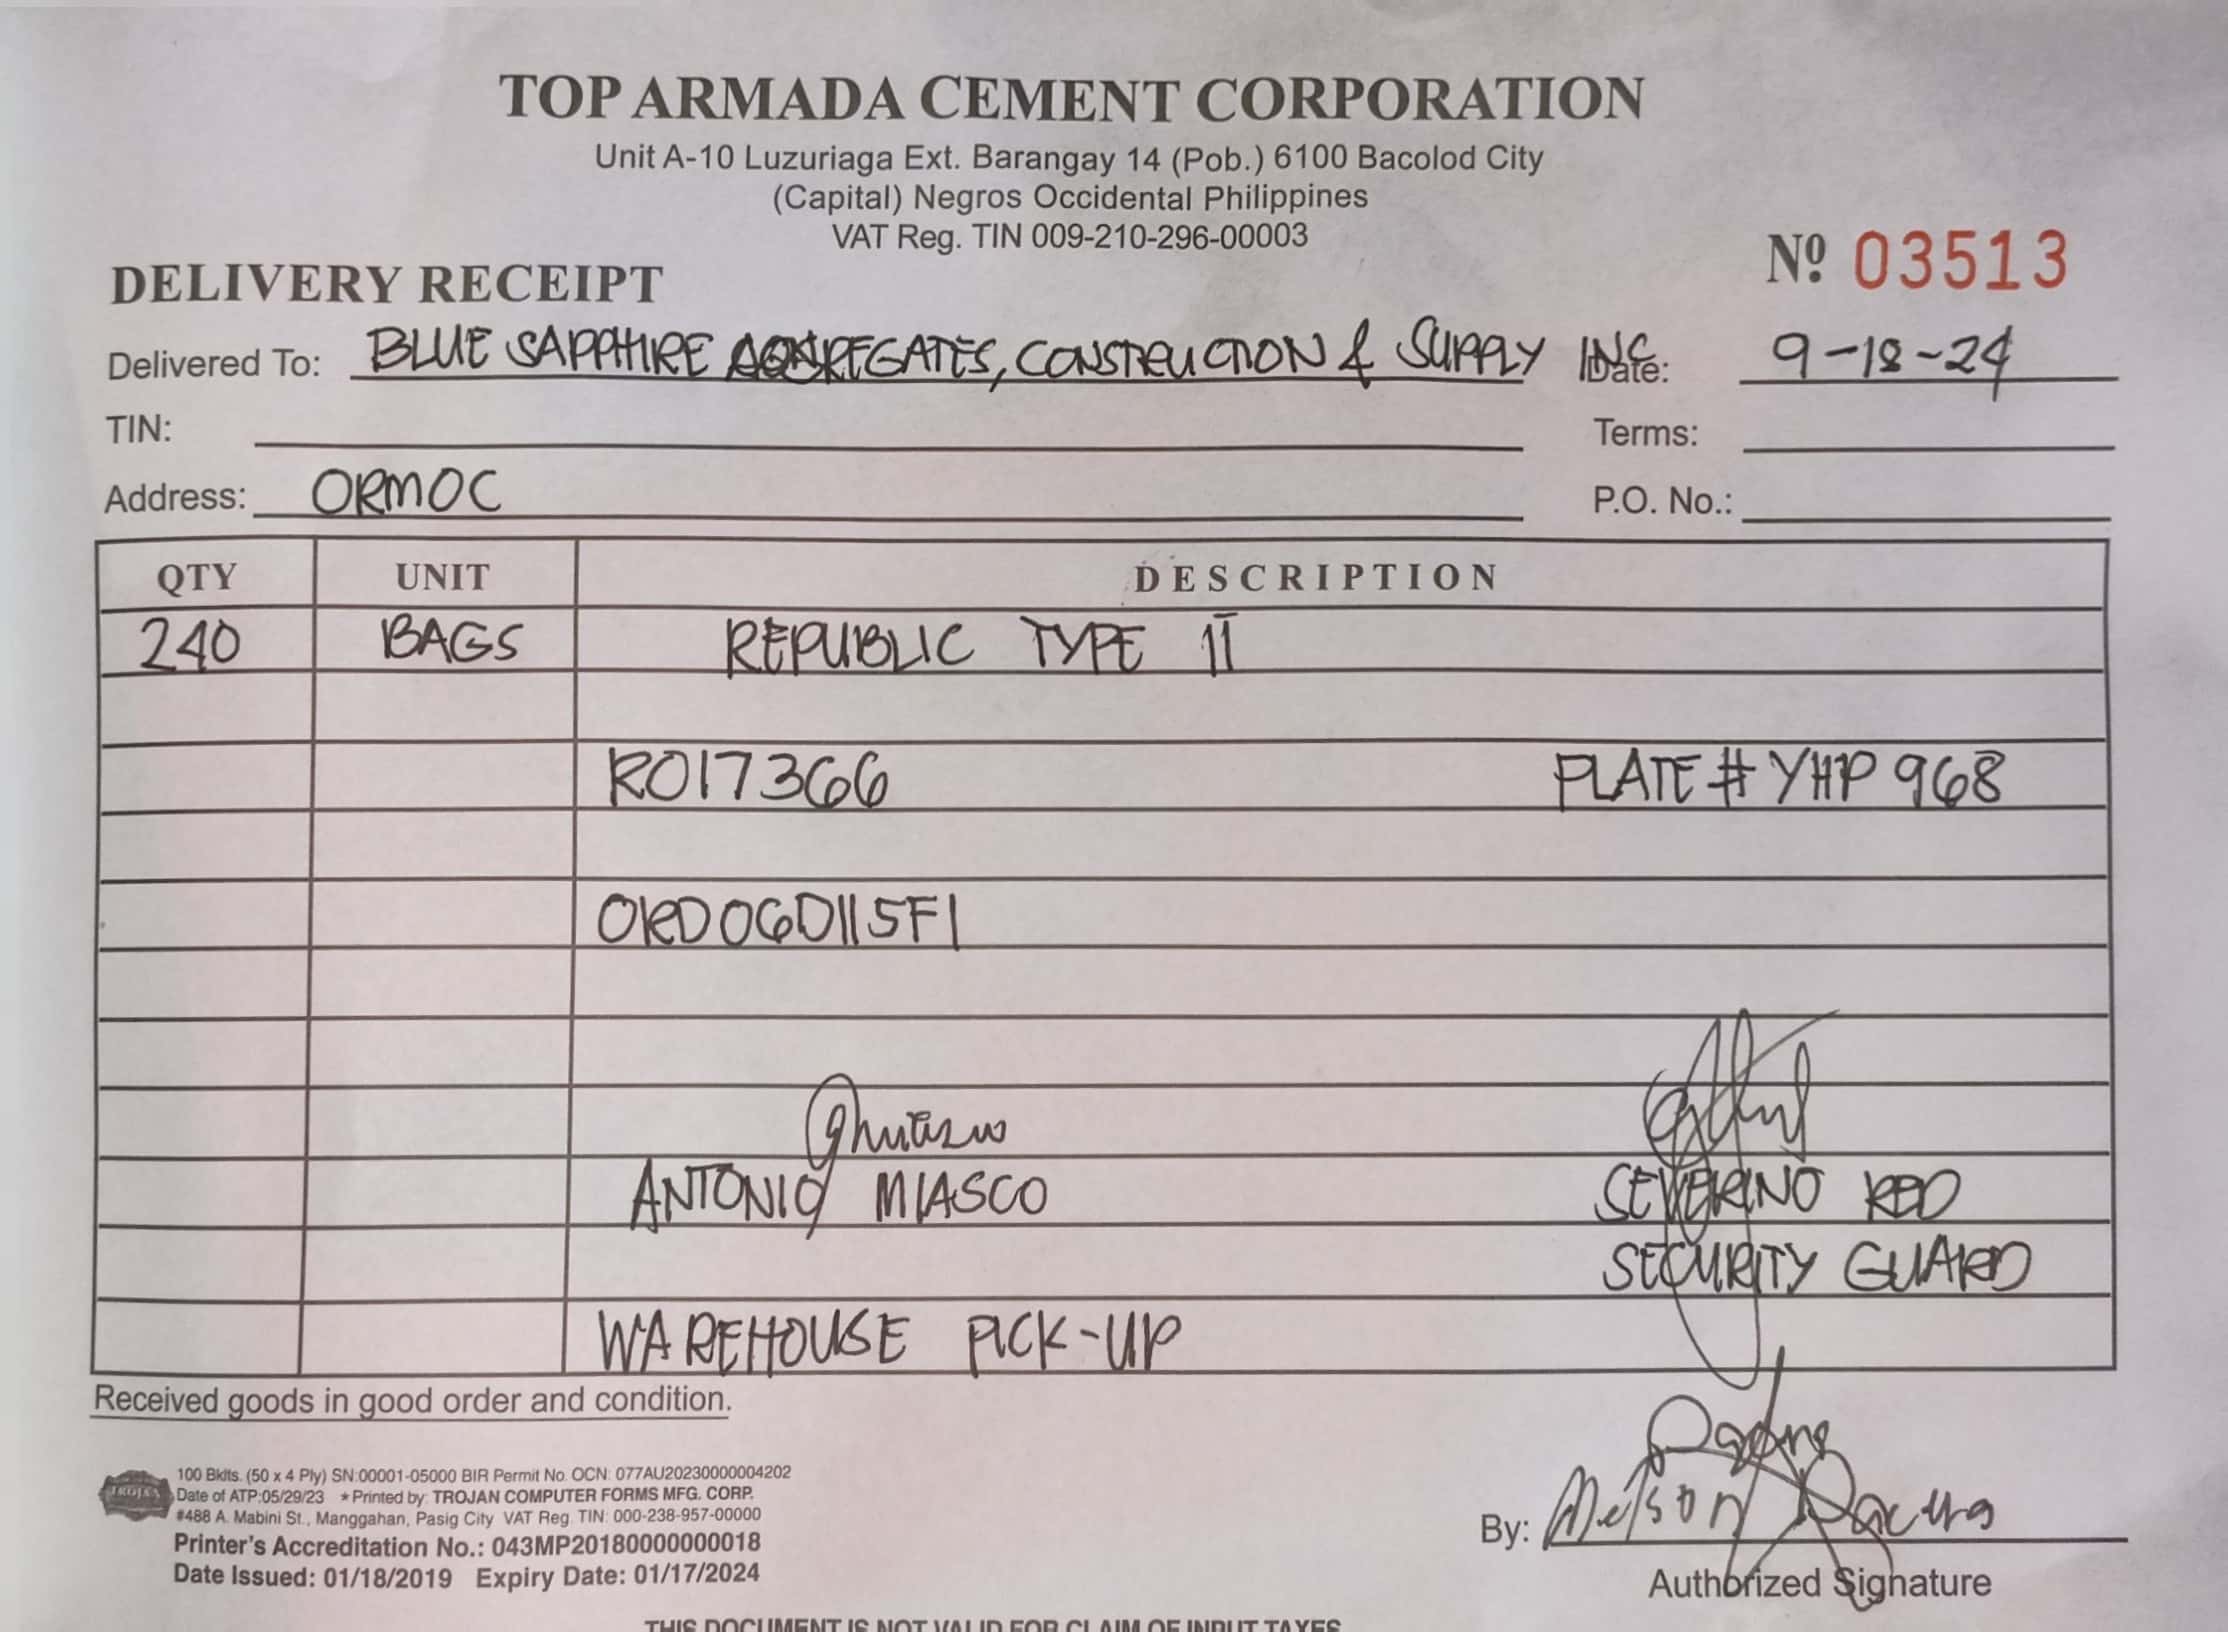 TOP ARMADA CEMENT CORPORATION
Unit A-10 Luzuriaga Ext. Barangay 14 (Pob.) 6100 Bacolod City
(Capital) Negros Occidental Philippines
VAT Reg. TIN 009-210-296-00003
Nº 03513
DELIVERY RECEIPT
Delivered To: BLUE SAPPHIRE AGGREGATES, CONSTRUCTION & SUPPLY INC. Date: 9-18-24
TIN: Terms:
Address: ORMOC P.O. No.:
QTY UNIT DESCRIPTION
240 BAGS REPUBLIC TYPE 1T
RO17366 PLATE # YHP 968
ORD06D115F1
ANTONIO MIASCO SEVERINO RED
SECURITY GUARD
WAREHOUSE PICK-UP
Received goods in good order and condition.
100 Bklts. (50 x 4 Ply) SN:00001-05000 BIR Permit No. OCN: 077AU20230000004202
Date of ATP:05/29/23 ★Printed by: TROJAN COMPUTER FORMS MFG. CORP.
#488 A. Mabini St., Manggahan, Pasig City VAT Reg. TIN: 000-238-957-00000
Printer's Accreditation No.: 043MP20180000000018
Date Issued: 01/18/2019 Expiry Date: 01/17/2024
TROJAN
By: Melson
Authorized Signature
THIS DOCUMENT IS NOT VALID FOR CLAIM OF INPUT TAXES